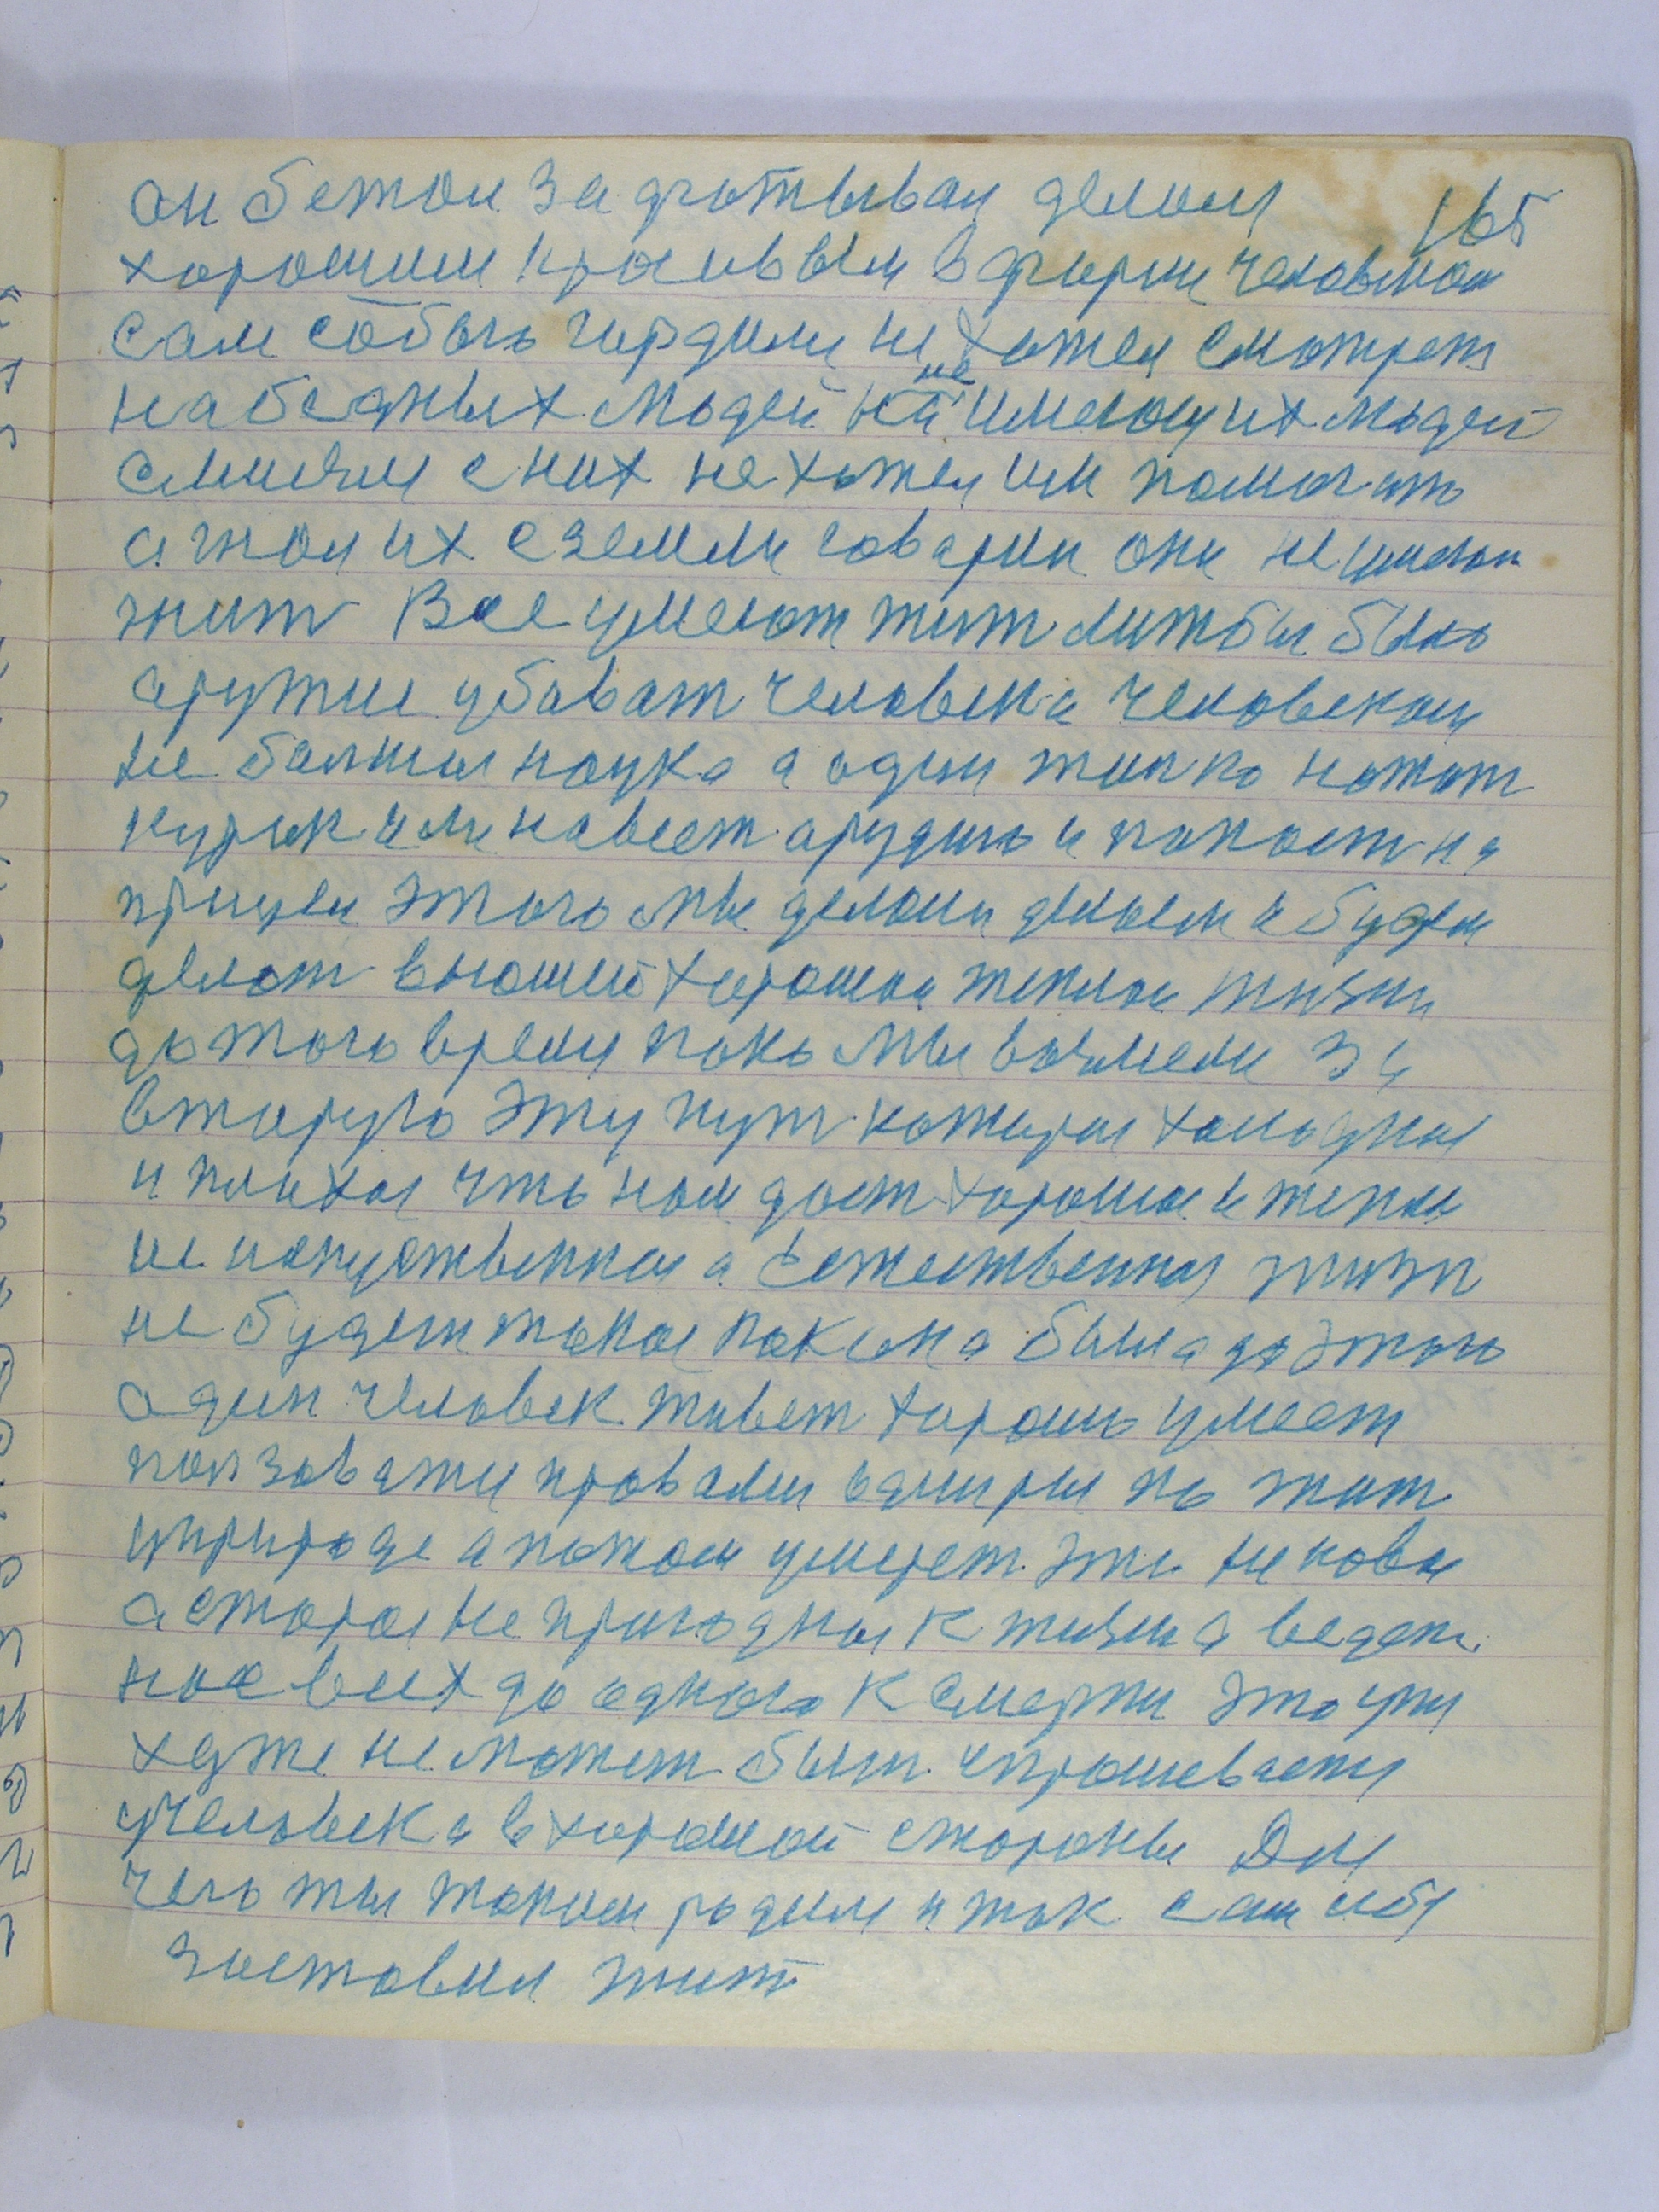 165
он бежал за хватывал делом
хорошим красивым в фирме человеком
сам собою гордили не хотел смотрет
на бедных людей не имеющих людей
смияли с них не хотел им помогат
а гнал их с земли говарил они не умеют
жит Все умеют жит лижбы было
аружие убават человека человеком
не балшая наука а один толко нажат
курак или навест арудию и попаст на
прицел этого мы делали делаем и будем
делат в нашей хорошай теплай жизни
до того время пока мы возмем за
вторую эту пут которая холодная
и плохая что нам даст хорошая и тепла
не искуственная а естественная жизн
не будет такая как она была до этого
один человек живет хорошо умеет
ползоватся правами
природе а потом умерет это не новая
а старая не пригодная к жизни а ведет
нас всих до одного к смерти это уже
хуже не может быт спрашевается
у человека в хорошой стороны Для
чего ты таким родился и так сам себя
заставил жит